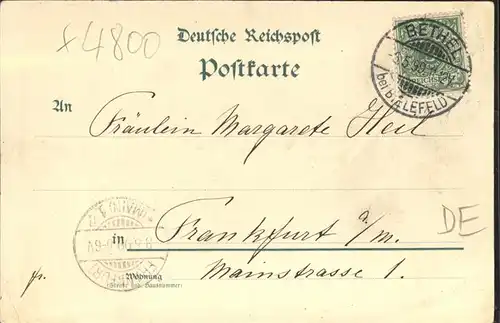 x 4800
Deutsche Reichspost
Postkarte
BETHEL
bei BIELEFELD
An
Fräulein Margarete Heil
in Frankfurt a/m.
DE
fr.
Mainstrasse 1.
Wohnung
(Straße und Hausnummer)